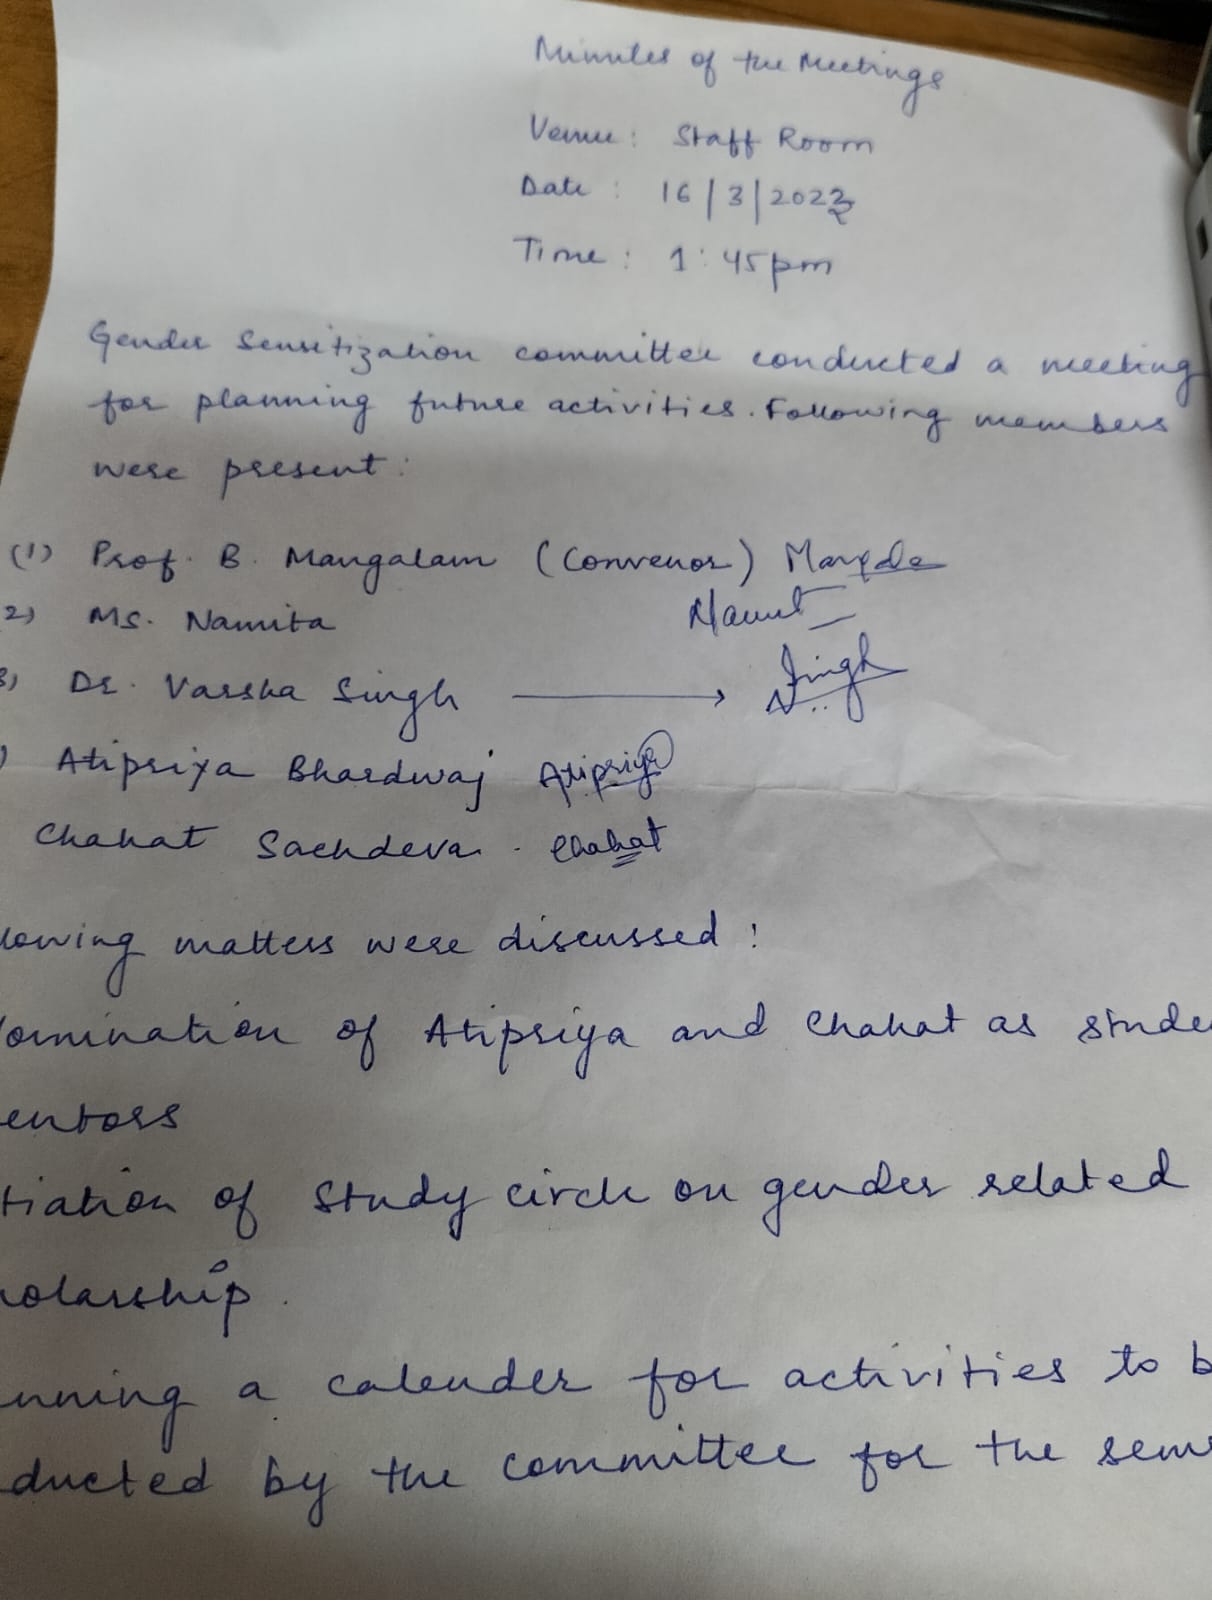 Minutes of the Meetings
Venue : Staff Room
Date : 16/3/2022
Time : 1:45pm
Gender Sensitization committee conducted a meeting
for planning future activities. Following members
were present :
(1) Prof. B. Mangalam (Convenor)
2) Ms. Namita
3) Dr. Varsha Singh → Singh
) Atipriya Bhardwaj Atipriya
Chahat Sachdeva . Chahat
lowing matters were discussed :
omination of Atipriya and Chahat as stude
entors
tiation of Study circle on gender related
holarship.
nning a calender for activities to b
ducted by the committee for the sem